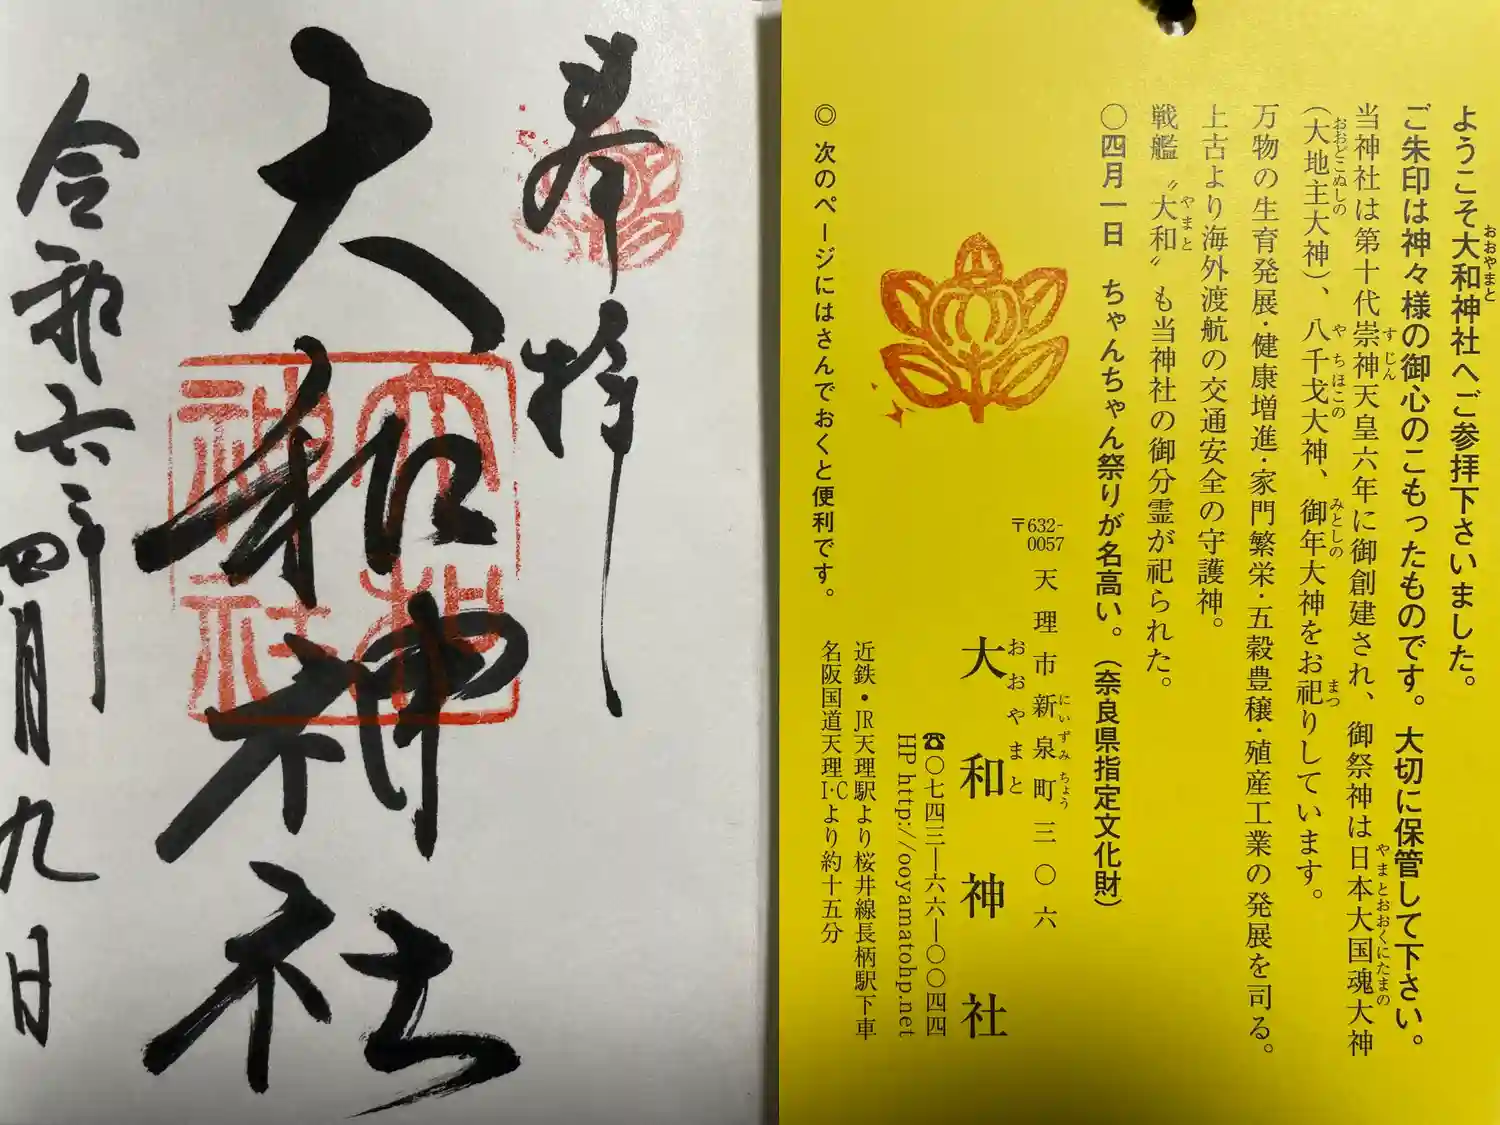 ようこそ大和神社へご参拝下さいました。
おおやまと
ご朱印は神々様の御心のこもったものです。大切に保管して下さい。
当神社は第十代崇神天皇六年に御創建され、御祭神は日本大国魂大神
すじん
やまとおおくにたまの
（大地主大神）、八千戈大神、御年大神をお祀りしています。
おおどこぬしの
やちほこの
みとしの
まつ
万物の生育発展・健康増進・家門繁栄・五穀豊穣・殖産工業の発展を司る。
上古より海外渡航の交通安全の守護神。
戦艦〝大和〟も当神社の御分霊が祀られた。
やまと
〇四月一日　ちゃんちゃん祭りが名高い。（奈良県指定文化財）
〒632-0057
天理市新泉町三〇六
にいずみちょう
大和神社
おおやまと
☎〇七四三―六六―〇〇四四
HP http://ooyamatohp.net
近鉄・JR天理駅より桜井線長柄駅下車
名阪国道天理I・Cより約十五分
◎ 次のページにはさんでおくと便利です。
奉拝
大和神社
大和
神社
令和六年四月九日